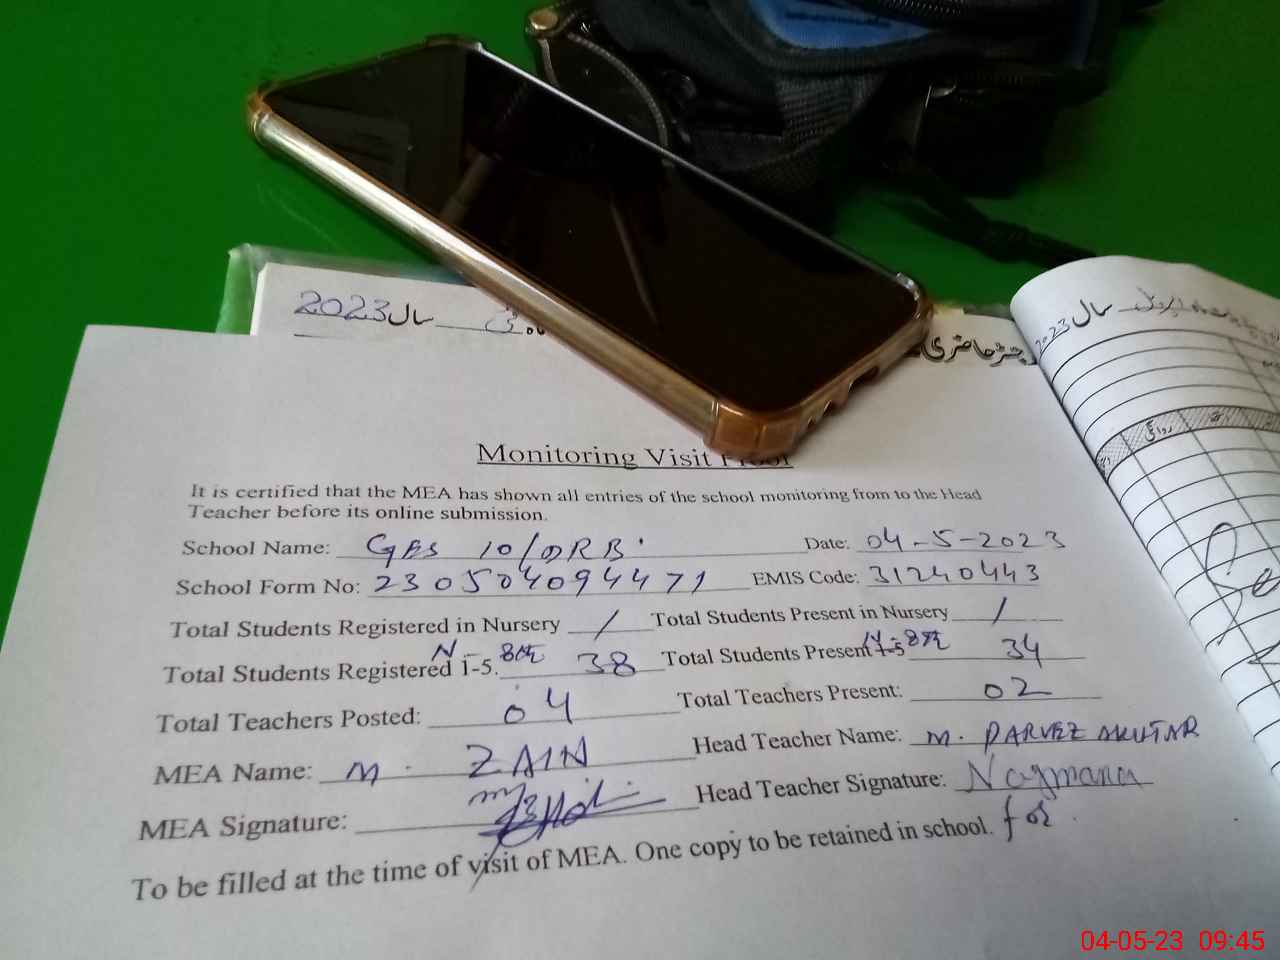 2023 سال
جسٹر حاضری
2023 سال اپریل
روانگی
Monitoring Visit Proof
It is certified that the MEA has shown all entries of the school monitoring from to the Head
Teacher before its online submission.
School Name: GES 10/DRB Date: 04-5-2023
School Form No: 230504094471 EMIS Code: 31240443
Total Students Registered in Nursery / Total Students Present in Nursery /
N - 8th N-8th
Total Students Registered 1-5. 38 Total Students Present 1-5 34
Total Teachers Posted: 04 Total Teachers Present: 02
MEA Name: M. ZAIN Head Teacher Name: M. PARVEZ AKHTAR
MEA Signature: Head Teacher Signature: Nagmana
for
To be filled at the time of visit of MEA. One copy to be retained in school.
04-05-23 09:45